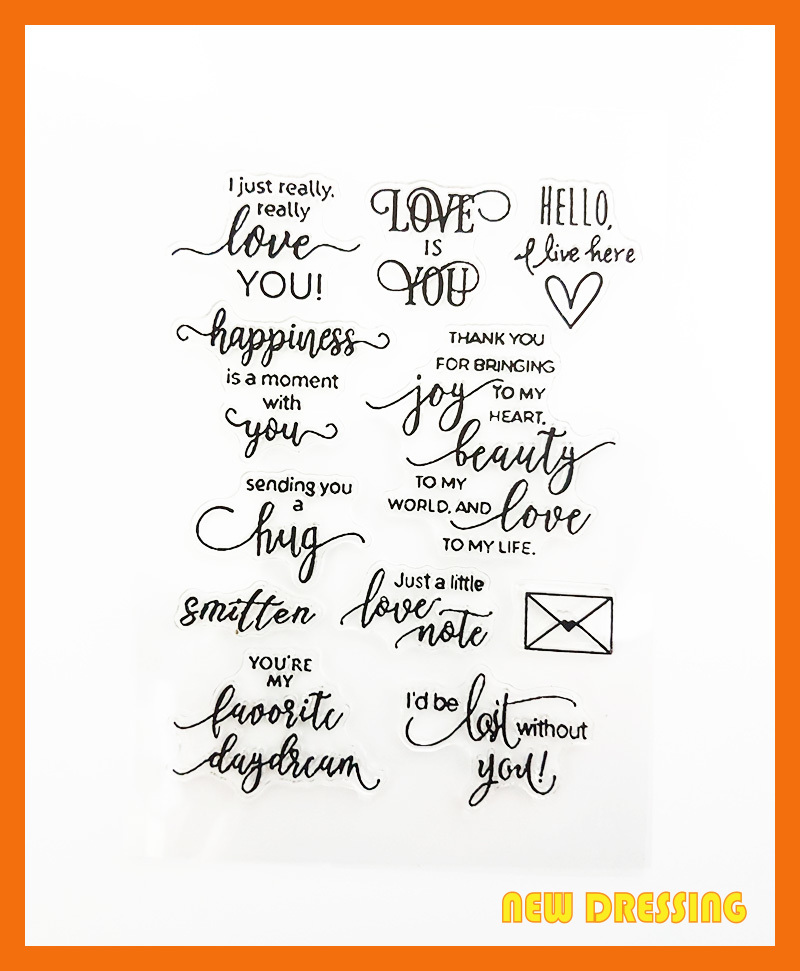 I just really,
really
love
YOU!
LOVE
IS
YOU
HELLO,
I live here
happiness
is a moment
with
you
THANK YOU
FOR BRINGING
joy TO MY
HEART,
beauty
TO MY
WORLD, AND love
TO MY LIFE.
sending you
a
hug
smitten
Just a little
love
note
YOU'RE
MY
favorite
daydream
I'd be lost without
you!
NEW DRESSING